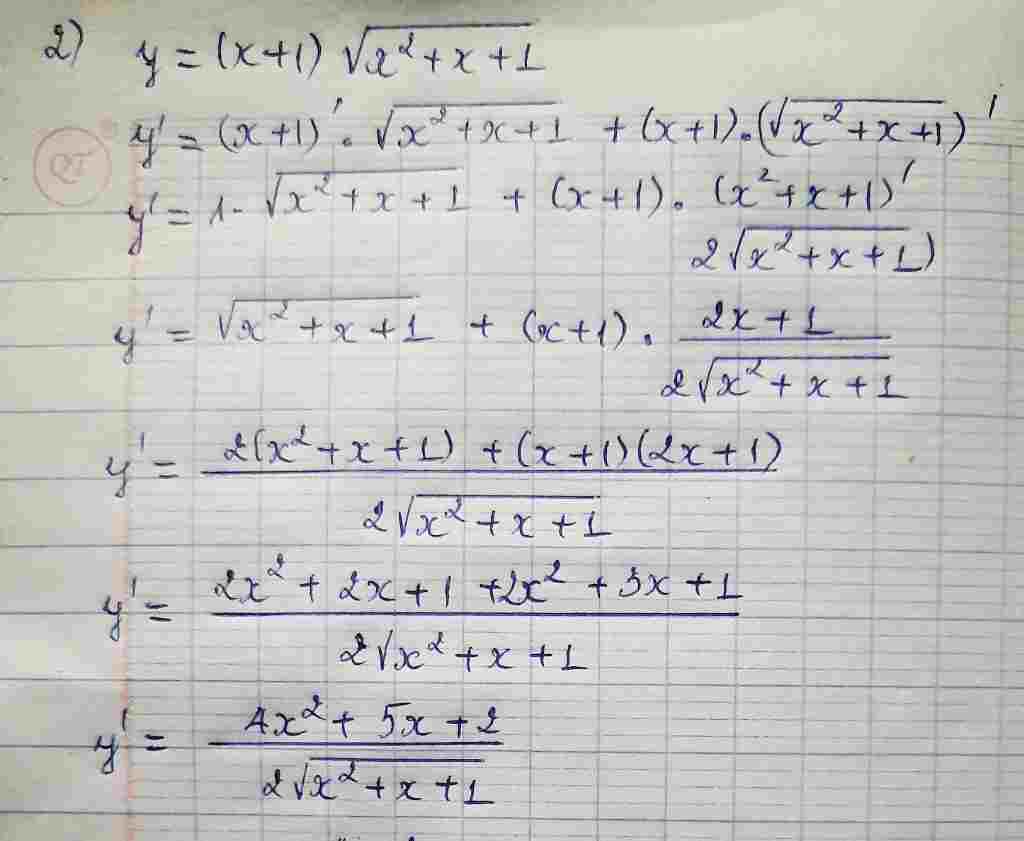 2) y = (x+1) √(x² + x + 1)
y' = (x+1)' . √(x² + x + 1) + (x+1) . (√(x² + x + 1))'
QT
y' = 1 . √(x² + x + 1) + (x+1) . (x² + x + 1)'
2√(x² + x + 1))
y' = √(x² + x + 1) + (x+1) . (2x + 1)/(2√(x² + x + 1))
y' = (2(x² + x + 1) + (x+1)(2x+1))/(2√(x² + x + 1))
y' = (2x² + 2x + 1 + 2x² + 3x + 1)/(2√(x² + x + 1))
y' = (4x² + 5x + 2)/(2√(x² + x + 1))